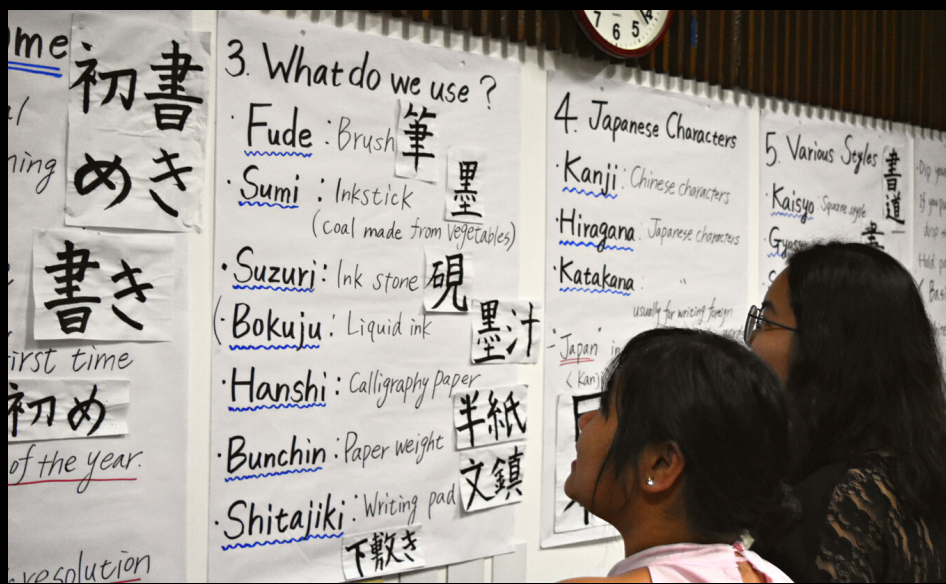 me
初書
めき
書き
irst time
初め
of the year.
resolution
3. What do we use?
・Fude : Brush 筆
・Sumi : Inkstick 墨
(coal made from vegetables)
・Suzuri : Ink stone 硯
(・Bokuju : Liquid ink 墨汁
・Hanshi : Calligraphy paper 半紙
・Bunchin : Paper weight 文鎮
・Shitajiki : Writing pad
下敷き
4. Japanese Characters
・Kanji : Chinese characters
・Hiragana : Japanese characters
・Katakana : 〃
usually for writing foreign
Japan in
<Kanj
5. Various Styles 書道
・Kaisyo Square style
・Dip you
If you
Hold
7 6 5 4